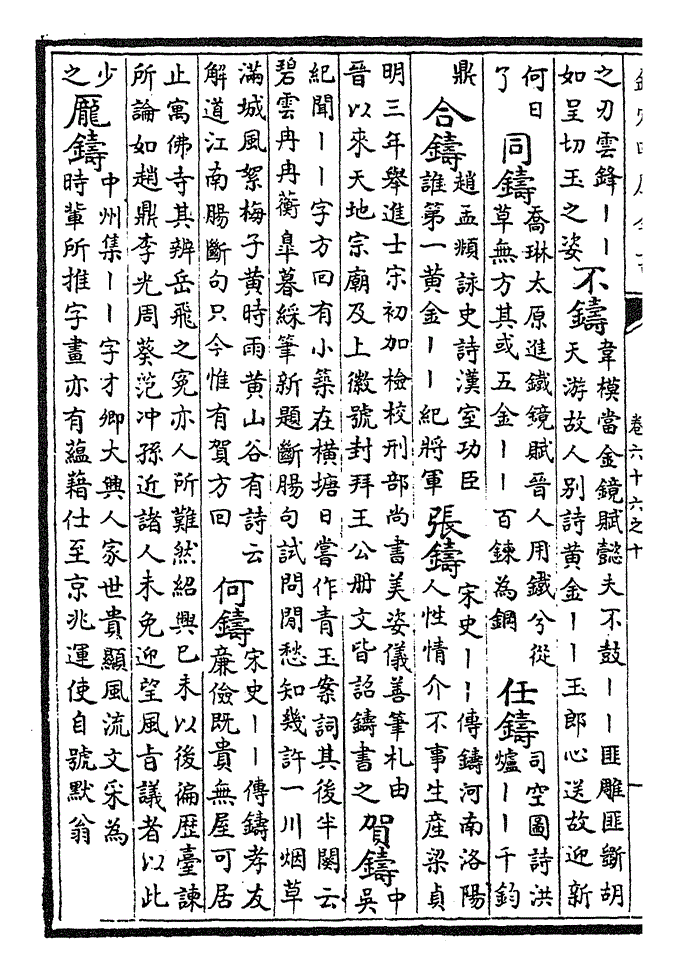 卷六十六之十
一
之刃雲鋒｜｜如呈切玉之姿 不鑄 韋模當金鏡賦懿夫不鼓｜｜匪雕匪斵胡天游故人别詩黄金｜｜玉郎心送故迎新
何日了 同鑄 喬琳太原進鐵鏡賦晉人用鐵兮從草無方其或五金｜｜百鍊為鋼 任鑄 司空圖詩洪爐｜｜千鈞
鼎 合鑄 趙孟頫詠史詩漢室功臣誰第一黄金｜｜紀將軍 張鑄 宋史｜｜傳鑄河南洛陽人性情介不事生産梁貞
明三年舉進士宋初加檢校刑部尚書美姿儀善筆札由晉以來天地宗廟及上徽號封拜王公册文皆詔鑄書之 賀鑄 中吳
紀聞｜｜字方回有小築在横塘日嘗作青玉案詞其後半闋云碧雲冉冉蘅臯暮綵筆新題斷腸句試問閒愁知幾許一川烟草
滿城風絮梅子黄時雨黄山谷有詩云解道江南腸斷句只今惟有賀方回 何鑄 宋史｜｜傳鑄孝友廉儉既貴無屋可居
止寓佛寺其辨岳飛之寃亦人所難然紹興已未以後徧歷臺諫所論如趙鼎李光周葵范冲孫近諸人未免迎望風旨議者以此
少之 龎鑄 中州集｜｜字才卿大興人家世貴顯風流文采為時輩所推字畫亦有藴藉仕至京兆運使自號默翁